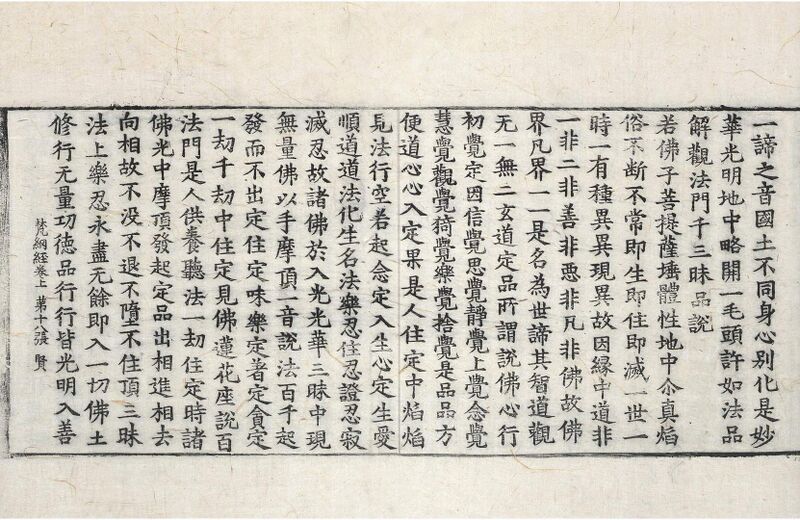 一諦之音國土不同身心別化是妙
華光明地中略開一毛頭許如法品
解觀法門千三昧品說
若佛子菩提薩埵體性地中尒真焰
俗不斷不常即生即住即滅一世一
時一有種異異現異故因緣中道非
一非二非善非惡非凡非佛故佛
界凡界一一是名為世諦其智道觀
无一無二玄道定品所謂說佛心行
初覺定因信覺思覺靜覺上覺念覺
慧覺觀覺猗覺樂覺捨覺是品品方
便道心心入定果是人住定中焰焰
見法行空若起念定入生心定生愛
順道道法化生名法樂忍住忍證忍寂
滅忍故諸佛於入光光華三昧中現
無量佛以手摩頂一音說法百千起
發而不出定住定味樂定著定貪定
一劫千劫中住定見佛蓮花座說百
法門是人供養聽法一劫住定時諸
佛光中摩頂發起定品出相進相去
向相故不没不退不墮不住頂三昧
法上樂忍永盡无餘即入一切佛土
修行无量功德品行行皆光明入善
梵網經卷上 第十八張 賢